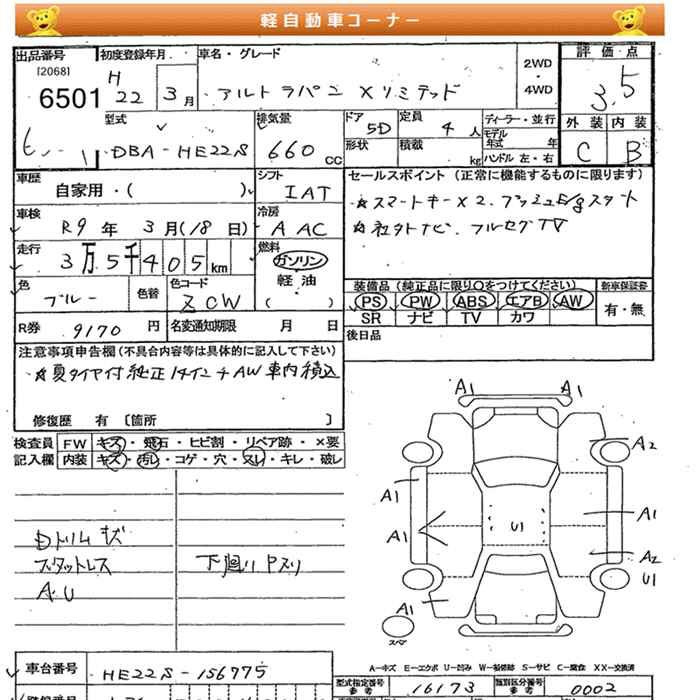 軽自動車コーナー
出品番号 初度登録年月 車名・グレード 2WD・4WD 評価点
[2068] 6501 H22 3月 アルトラパン Xリミテッド 3.5
型式 排気量 ドア 定員 ディーラー・並行 外装 内装
DBA-HE22S 660cc 5D 4人 モデル年式 年 C B
形状 積載 kg ハンドル 左・右
車歴 シフト セールスポイント (正常に機能するものに限ります)
自家用・( ) IAT ☆スマートキーX2、プッシュE/gスタート
車検 冷房 ☆社外ナビ、フルセグTV
R9年 3月(18日) A AC
走行 燃料
3万5千405km ガソリン 軽油 ( )
色 色替 色コード 装備品 (純正品に限り○をつけてください) 新車保証書
ブルー ZCW PS PW ABS エアB AW 有・無
SR ナビ TV カワ
R券 9170円 名変通知期限 月 日 後日品
注意事項申告欄 (不具合内容等は具体的に記入して下さい)
☆夏タイヤ付純正14インチAW車内積込
修復歴 有 [箇所 ]
検査員 FW キズ・飛石・ヒビ割・リペア跡・×要
記入欄 内装 キズ・汚れ・コゲ・穴・スレ・キレ・破レ
A1 A1
A2
A1 A1
A1 U1
A2
U1
A1
スペア
Dトリムキズ
スタットレス 下廻りPスリ
A.U
A-キズ E-エクボ U-凹み W-補修跡 S-サビ C-腐食 XX-交換済
車台番号 HE22S-156775
型式指定番号 参考 16173 類別区分番号 参考 0002